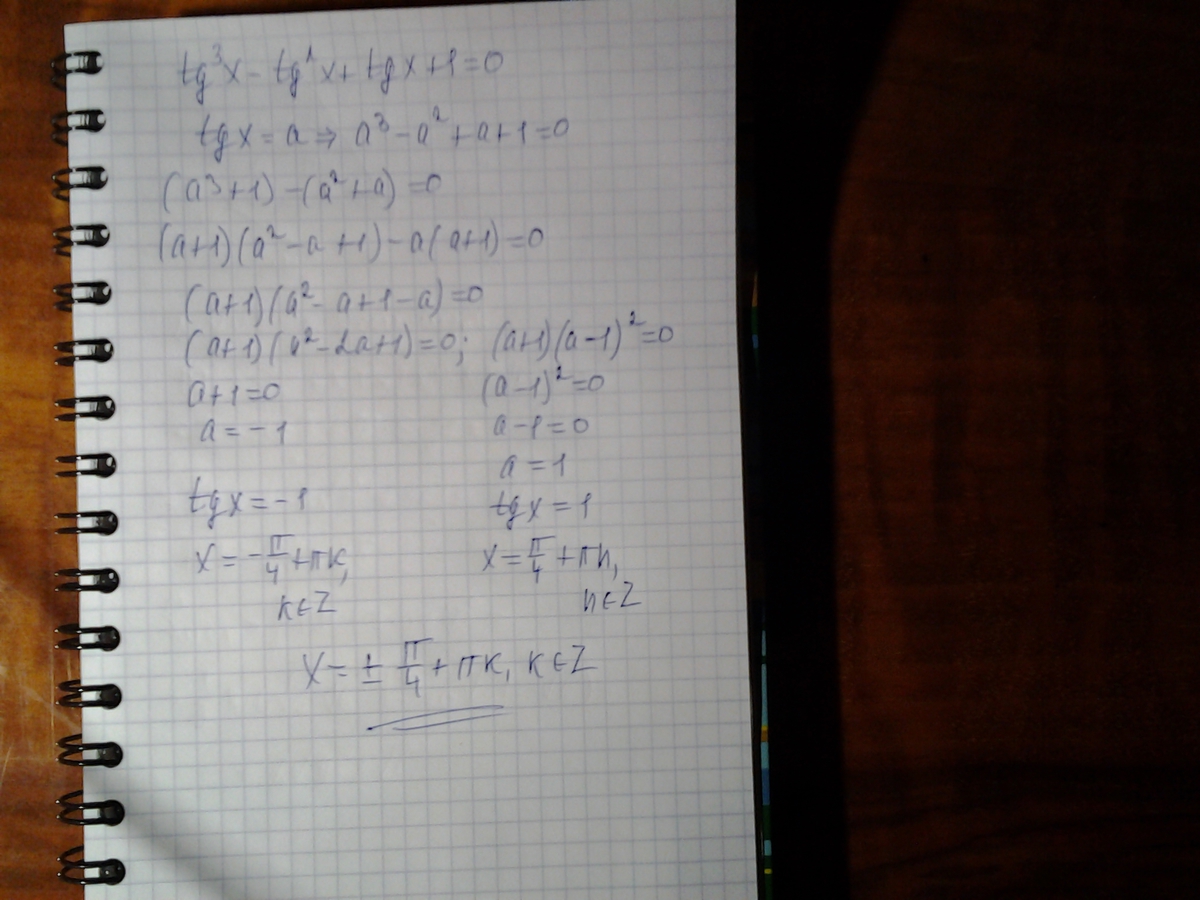 tg³x - tg²x + tgx + 1 = 0
tgx = a ⇒ a³ - a² + a + 1 = 0
(a³ + 1) - (a² + a) = 0
(a+1)(a² - a + 1) - a(a+1) = 0
(a+1)(a² - a + 1 - a) = 0
(a+1)(a² - 2a + 1) = 0; (a+1)(a-1)² = 0
a + 1 = 0 (a-1)² = 0
a = -1 a - 1 = 0
a = 1
tgx = -1 tgx = 1
x = -π/4 + πk, x = π/4 + πn,
k∈Z n∈Z
x = ± π/4 + πk, k∈Z